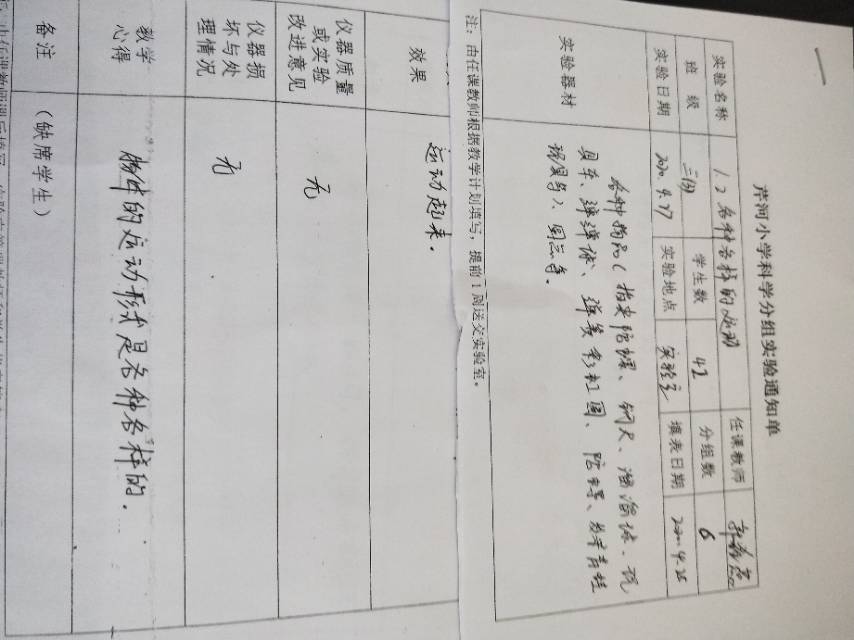 芹河小学科学分组实验通知单
实验名称 1.2 各种各样的运动 任课教师
班级 三(3) 学生数 42 分组数 6
实验日期 2020.4.27 实验地点 实验室 填表日期 2020.4.25
实验器材
各种物品(指尖陀螺、钢尺、溜溜球、玩
具车、弹弹球、
陀螺、
注:由任课教师根据教学计划填写,提前1周送交实验室。
效果 运动起来。
仪器质量
或实验
改进意见
无
仪器损
坏与处
理情况
无
教学
心得
物体的运动形式是各种各样的.
备注 (缺席学生)